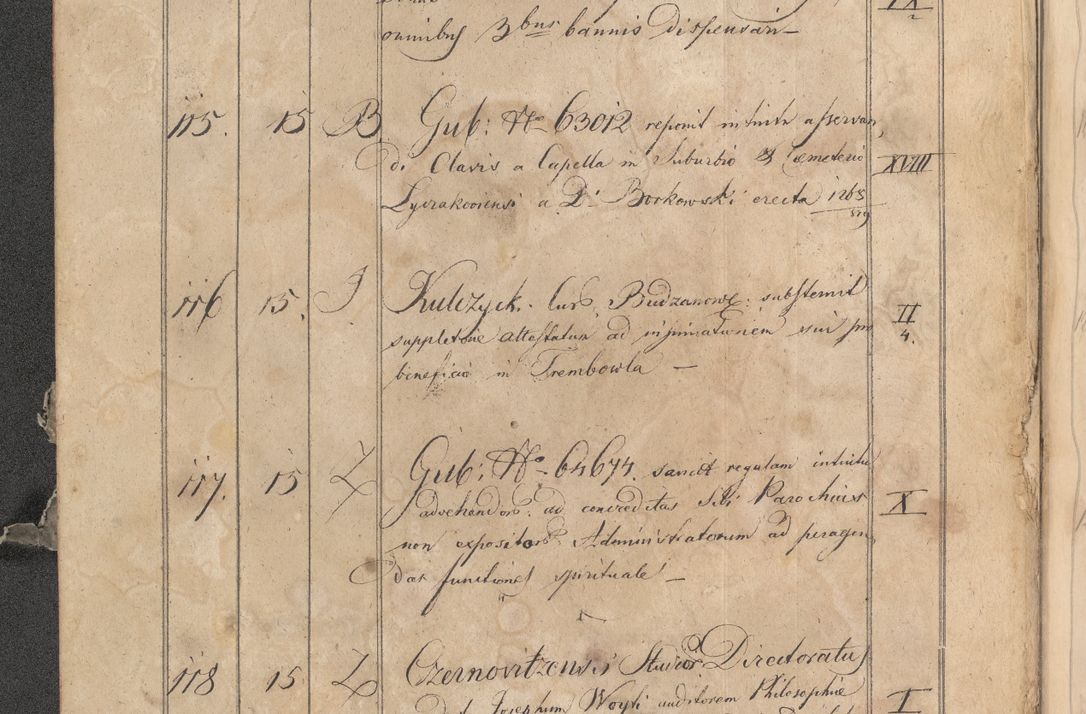 omnibus 3bus bannis dispensari
IX
2
115. 15 B Gub: No 63012 reponit intuitu asservan,
di Clavis a Capella in Suburbio et Cemeterio XVIII
Lyczakoviensi a D. Borkowski erecta 1263
116 15. J Kulczyck. Budzanow: substernit II
suppletorie ad sui pro 4.
beneficio in Trembowla —
117. 15 Z Gub: No 64674. regulam intuitu
ad concreditas Sibi Parochias X
non expositos Administratorum ad peragen
das functiones spirituales —
118 15 Z Czernovitzensis Studior Directoratus
Josephum Woyti auditorem Philosophiae I